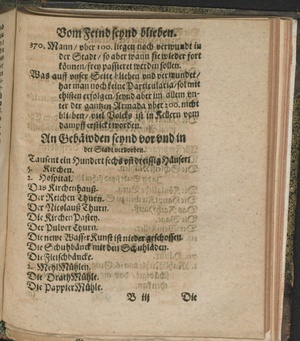 Vom Feind seynd blieben.
370. Mann/ vber 100. liegen noch verwundt in
der Stadt/ so aber wann sie wieder fort
können/ frey passiert werden sollen.
Was auff vnser Seite blieben vnd verwundet/
hat man noch keine Particularia/ sol mit
ehisten erfolgen/ seynd aber im allem vn-
ter der gantzen Armada vber 200. nicht
blieben/ viel Volcks ist in Kellern vom
dampff erstickt worden.
An Gebäwden seynd vor vnd in
der Stadt verdorben.
Tausent ein Hundert sechs vñ dreissig Häuser.
5. Kirchen.
2. Hospital.
Das Kirchenhauß.
Der Reichen Thurn.
Der Nicolauß Thurn.
Die Kirchen Pastey.
Der Pulver Thurn.
Die newe Wasser Kunst ist nieder geschossen.
Die Schuhbänck mit den Schuhläden.
Die Fleischbäncke.
2. Mehl Mühlen.
Die Drath Mühle.
Die Pappier Mühle.
B iij Die